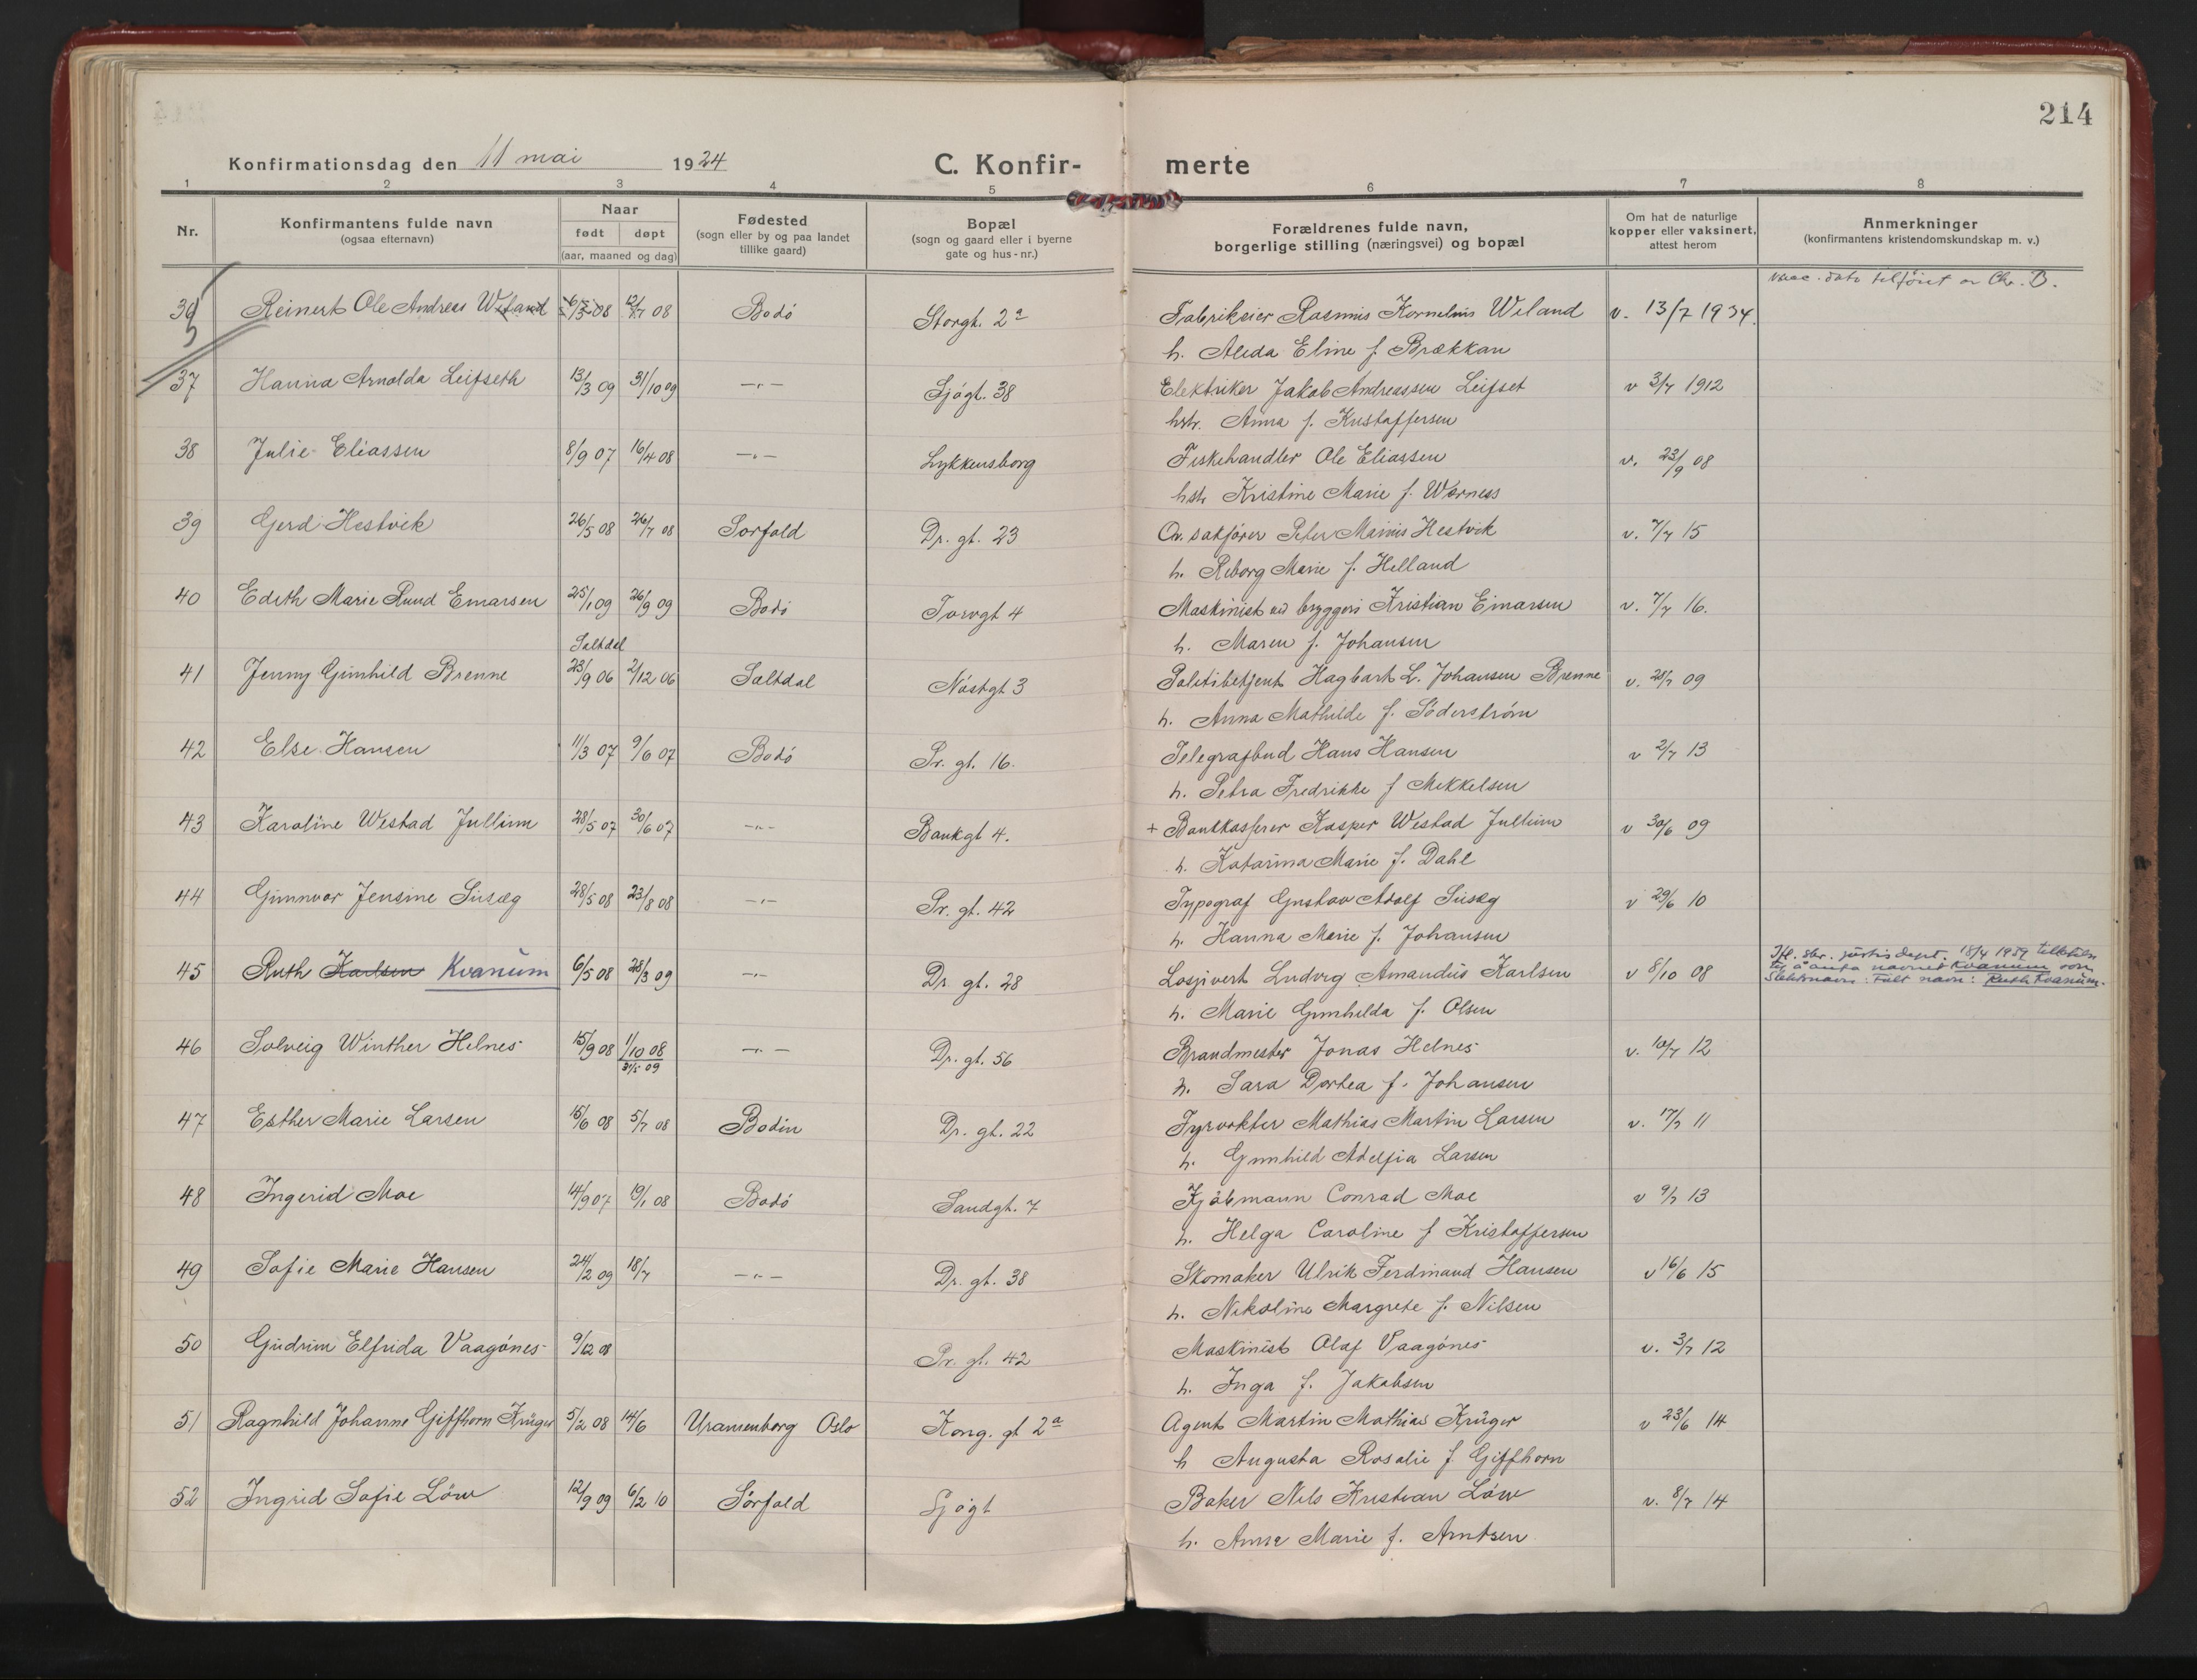 214
Konfirmationsdag den 11 mai 1924 C. Konfir- merte
1 2 3 4 5 6 7 8
Nr. Konfirmantens fulde navn (ogsaa efternavn) Naar født døpt (aar, maaned og dag) Fødested (sogn eller by og paa landet tillike gaard) Bopæl (sogn og gaard eller i byerne gate og hus-nr.) Forældrenes fulde navn, borgerlige stilling (næringsvei) og bopæl Om hat de naturlige kopper eller vaksinert, attest herom Anmerkninger (konfirmantens kristendomskundskap m. v.)
vacc. dato tilføiet av Chr. B.
36 Reinert Ole Andreas Weland 08 12/7 08 Bodó Storgt. 2a Fabrikeier Rasmus Kornelius Weland v. 13/7 1934.
h. Aleda Eline f. Brækkan
37 Hanna Arnolda Leifseth 13/3 09 31/10 09 —„— Sjógt. 38 Elektriker Jakob Andreassen Leifset v 3/7 1912
hstr. Anna f. Kristoffersen
38 Julie Eliassen 8/9 07 16/4 08 —„— Lykkensborg Fiskehandler Ole Eliassen v. 23/9 08
hstr Kristine Marie f. Wærness
39 Gerd Hestvik 26/5 08 26/7 08 Sorfold Dr. gt. 23 Ov. sakfører Peter Hestvik v. 7/7 15
h. Marie f. Helland
40 Edith Marie Ruud Einarsen 25/1 09 26/9 09 Bodó Torvgt 4 Maskinist ved bryggeri Kristian Einarsen v. 7/7 16.
Saltdal h. Maren f. Johansen
41 Jenny Gunhild Brenne 23/9 06 2/12 06 Saltdal Nóstgt 3 Politibetjent Hagbart L. Johansen Brenne v. 28/7 09
h. Anna Mathilde f. Söderström
42 Else Hansen 11/3 07 9/6 07 Bodó Pr. gt. 16. Telegrafbud Hans Hansen v 2/7 13
h. Petra Fredrikke f Mikkelsen
43 Karoline Westad Jullum 28/5 07 30/6 07 —„— Bankgt 4. + Bankkasserer Kasper Westad Jullum v 30/6 09
h. Katarina Marie f. Dahl
44 Gunnvor Jensine Susæg 28/5 08 23/8 08 —„— Pr. gt. 42 Typograf Gustav Adolf Susæg v 29/6 10
h. Hanna Marie f. Johansen
Ifl. skr. justis dept. 18/4 1959 tillatelse
til å anta navnet Kvanum som
45 Ruth Karlsen Kvanum 6/5 08 28/3 09 —„— Dr. gt. 28 Losjivert Ludvig Amandus Karlsen v 8/10 08 slektsnavn: Fullt navn: Ruth Kvanum.
h. Marie Gunhilda f. Olsen
46 Solveig Winther Helnes 15/9 08 1/10 08 —„— Dr. gt. 56 Brandmester Jonas Helnes v. 10/7 12
31/5 09 h. Sara Dortea f. Johansen
47 Esther Marie Larsen 15/6 08 5/7 08 Bodin Dr. gt. 22 Fyrvokter Mathias Martin Larsen v. 17/7 11
h. Gunhild Adelfia Larsen
48 Ingerid Moe 14/9 07 19/1 08 Bodó Sandgt. 7 Kjøbmann Conrad Moe v 9/7 13
h. Helga Caroline f Kristoffersen
49 Sofie Marie Hansen 24/2 09 18/7 —„— Dr. gt. 38 Skomaker Ulrik Ferdinand Hansen v 16/6 15
h. Nikoline Margrete f. Nilsen
50 Gudrun Elfrida Vaagónes 9/12 08 Pr. gt. 42 Maskinist Olaf Vaagónes v. 3/7 12
h. Inga f. Jakobsen
51 Ragnhild Johanne Giffhorn Krüger 5/2 08 14/6 Uranienborg Oslo Kong. gt 2a Agent Martin Mathias Krüger v 23/6 14
h Augusta Rosalie f Giffhorn
52 Ingrid Sofie Löw 12/9 09 6/2 10 Sörfold Sjógt Baker Nils Kristian Löw v. 8/7 14
h. Anna Marie f. Arntsen